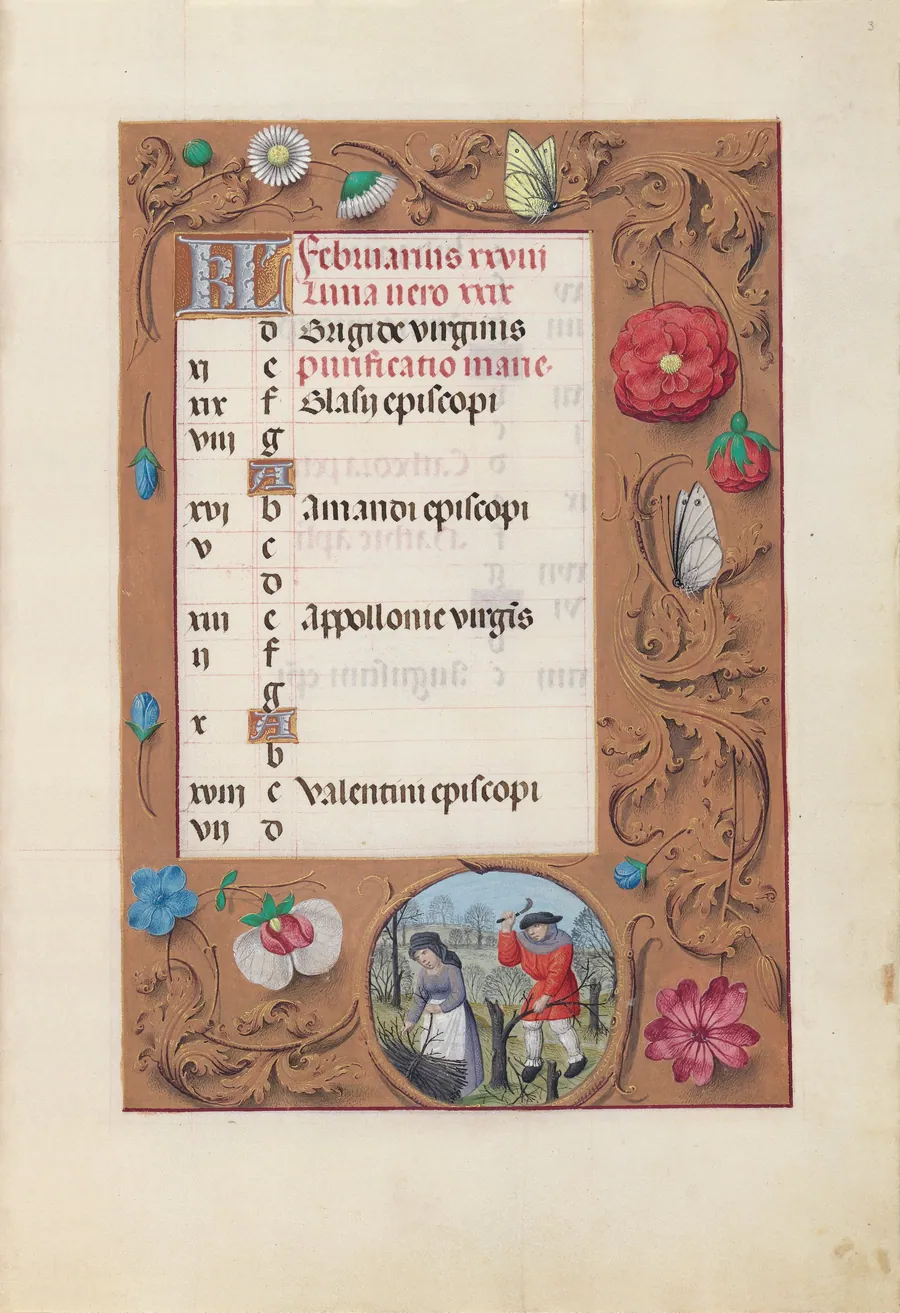 3
KL Februarius xxviii
Luna vero xxix
d Brigide virginis
xi e purificatio marie
xix f Blasij episcopi
viii g
A
xvi b Amandi episcopi
v c
d
xiii e Appollonie virgīs
ii f
g
x A
b
xviii c Valentini episcopi
vii d